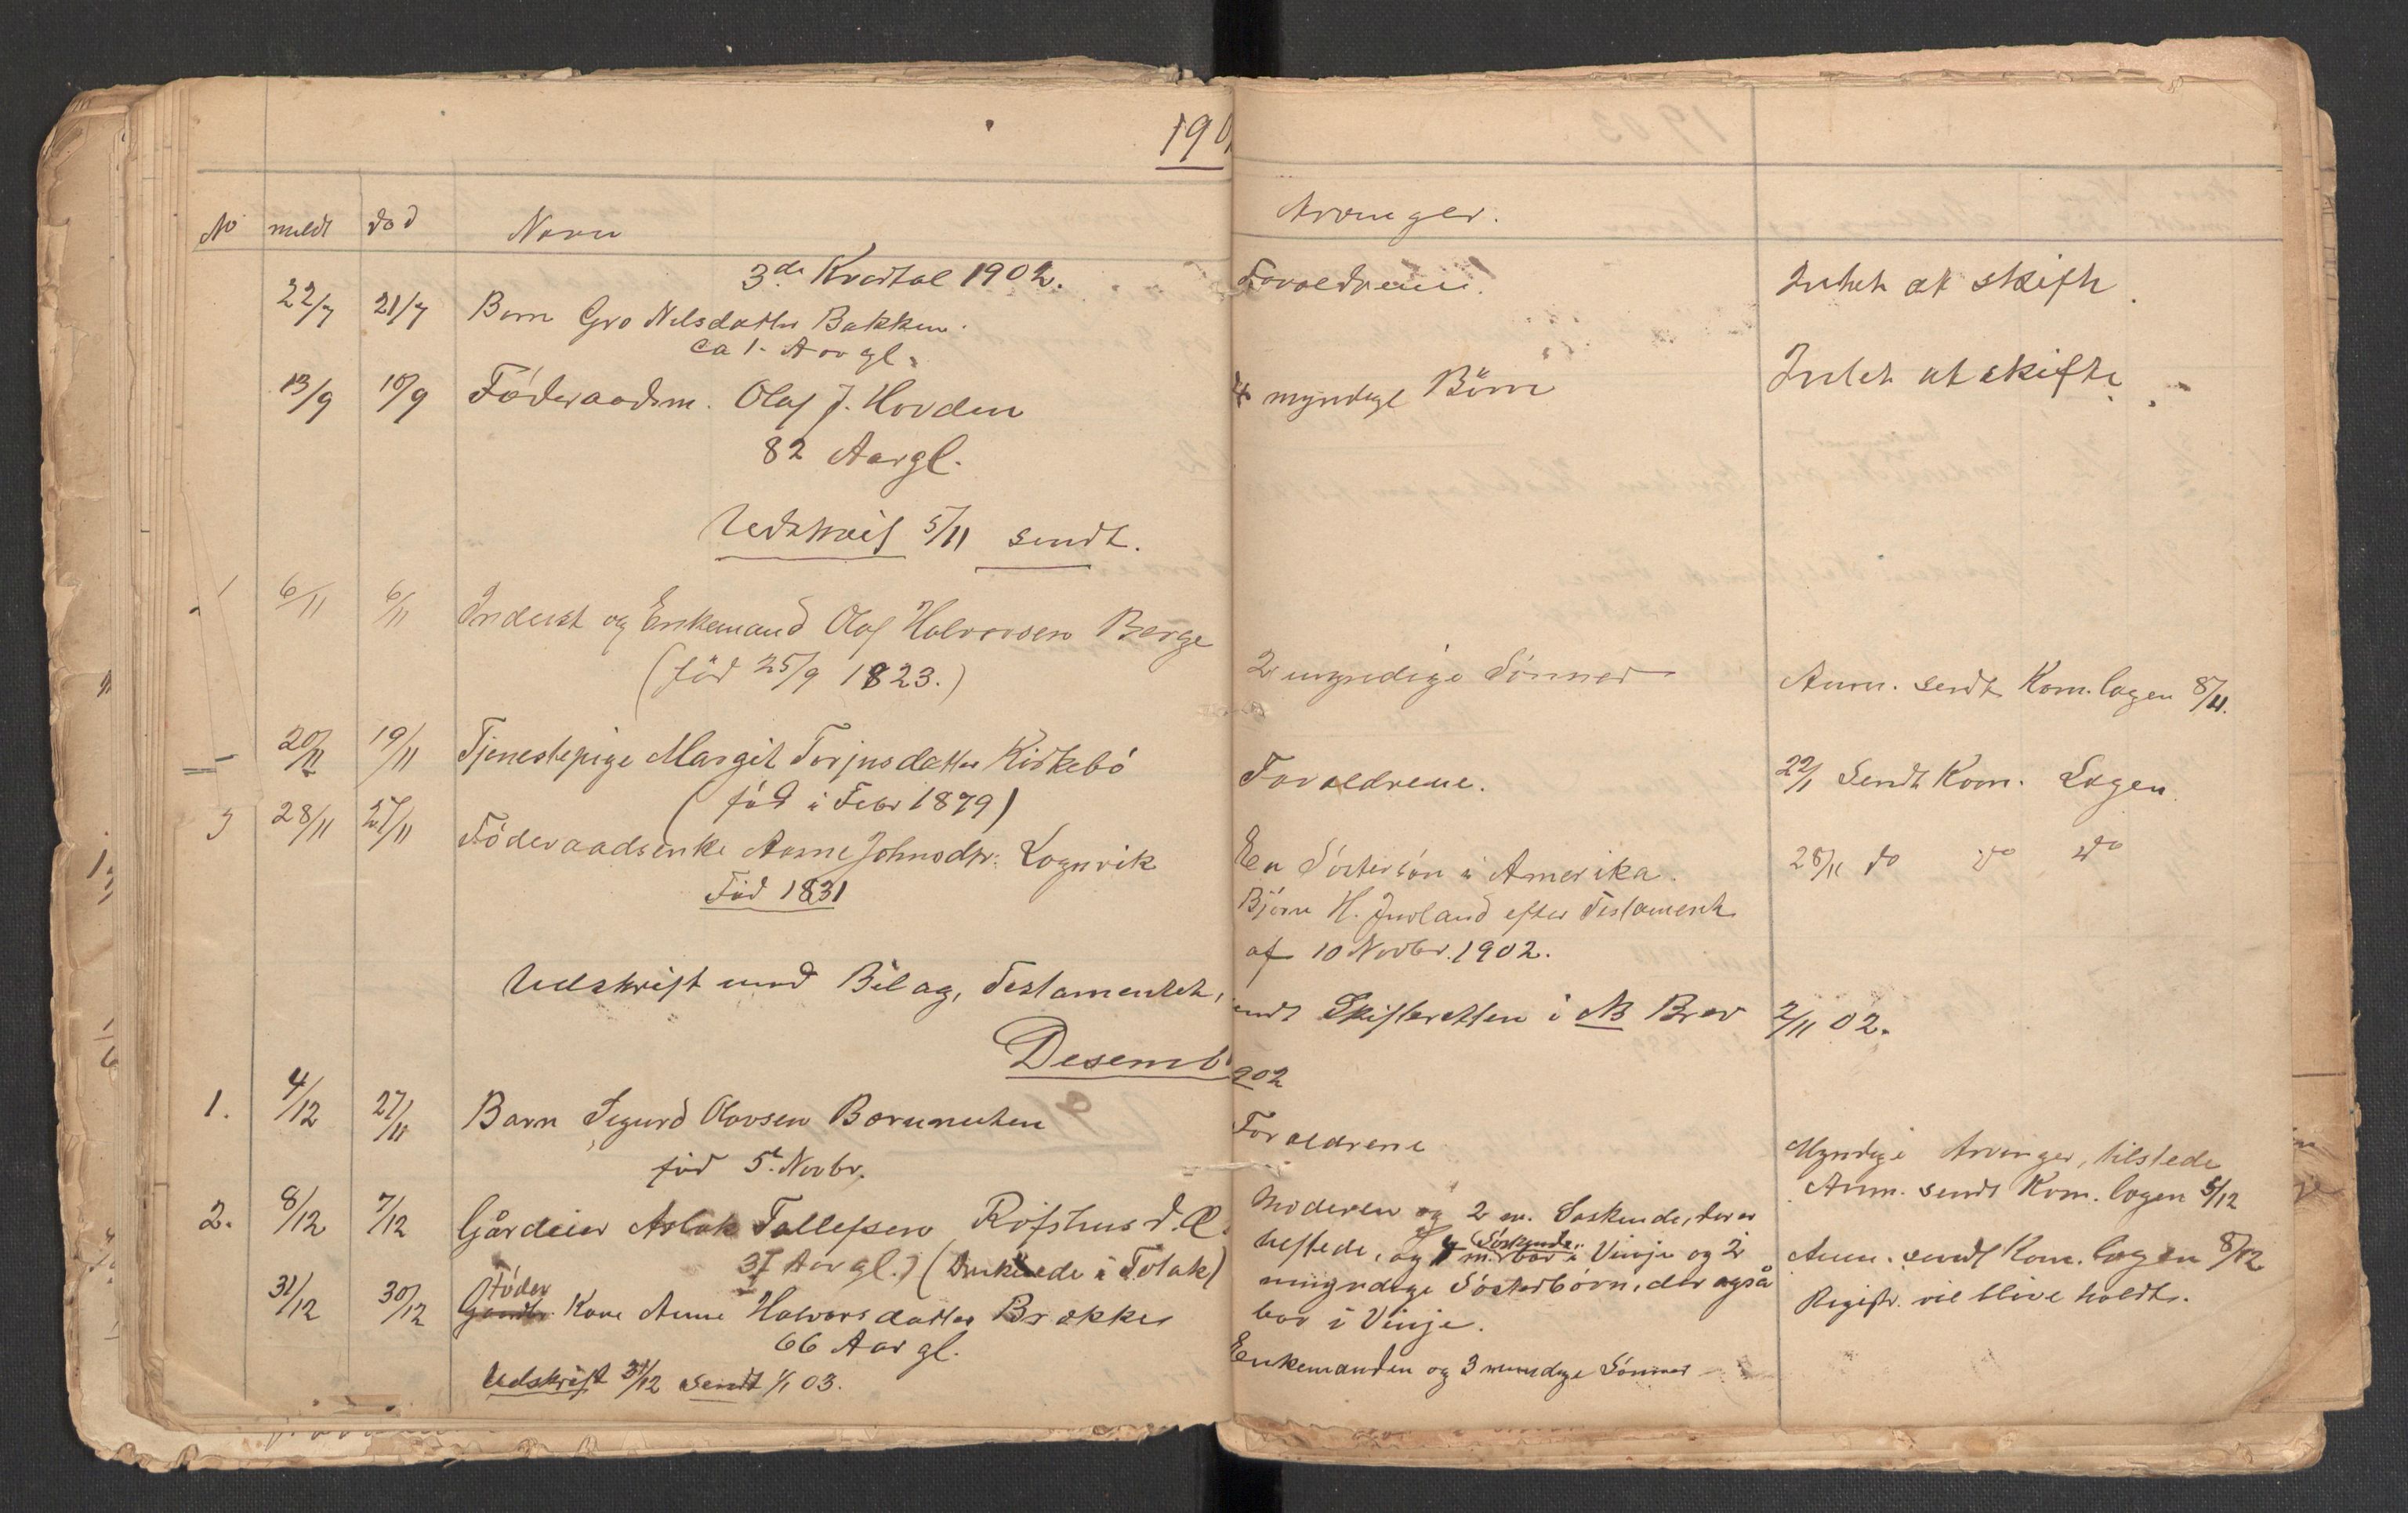 190
No meldt död Navn Arvinger.
3de Kvartal 1902.
22/7 21/7 Barn Gro Nilsdatter Bakken. Foraeldrene. Intet at skifte.
ca 1. Aar gl.
13/9 10/9 Föderaadsm. Olaf J. Hovden 4 myndige Börn Intet at skifte.
82 Aar gl.
Udskrift 5/11 sendt.
1 6/11 6/11 Inderst og Enkemand Olaf Halvorsen Berge
(föd 25/9 1823.) 2 myndige Sönner Anm. sendt Kom. lagen 8/11.
20/11 19/11 Tjenestepige Margit Torjusdatter Kirkebö Foraeldrene. 22/11 Sendt Kom. Lagen
(föd i Febr 1879)
3 28/11 27/11 Föderaadsenke Aasne Johnsdtr. Lognvik En Söstersön i Amerika. 28/11 do do do
Föd 1831 Björn H. Juvland efter Testament
af 10 Novbr. 1902.
Udskrift med Bilag, Testamentet, sendt Skifteretten i NB Brev 2/11 02.
Desemb 902
1. 4/12 27/11 Barn Sigurd Olavsen Foraeldrene Myndige Arvinger, tilstede
föd 5t. Novbr. Anm. sendt Kom. lagen 5/12
2. 8/12 7/12 Gårdeier Aslak Tallefsen Röfshus d. Æ. Moderen og 2 m. Söskende, der er
37 Aar gl.) (Druknede i Totak) tilstede, og 4 m. Söskende bor i Vinje og 2 Anm. sendt Kom. lagen 8/12
umyndige Söstersbörn, der også Registr. vil blive holdt.
bor i Vinje.
31/12 30/12 Föder Kone Anne Halvorsdatter Brække Enkemanden og 3 myndige Sönner
66 Aar gl.
Udskrift 31/12 sendt 1/1 03.